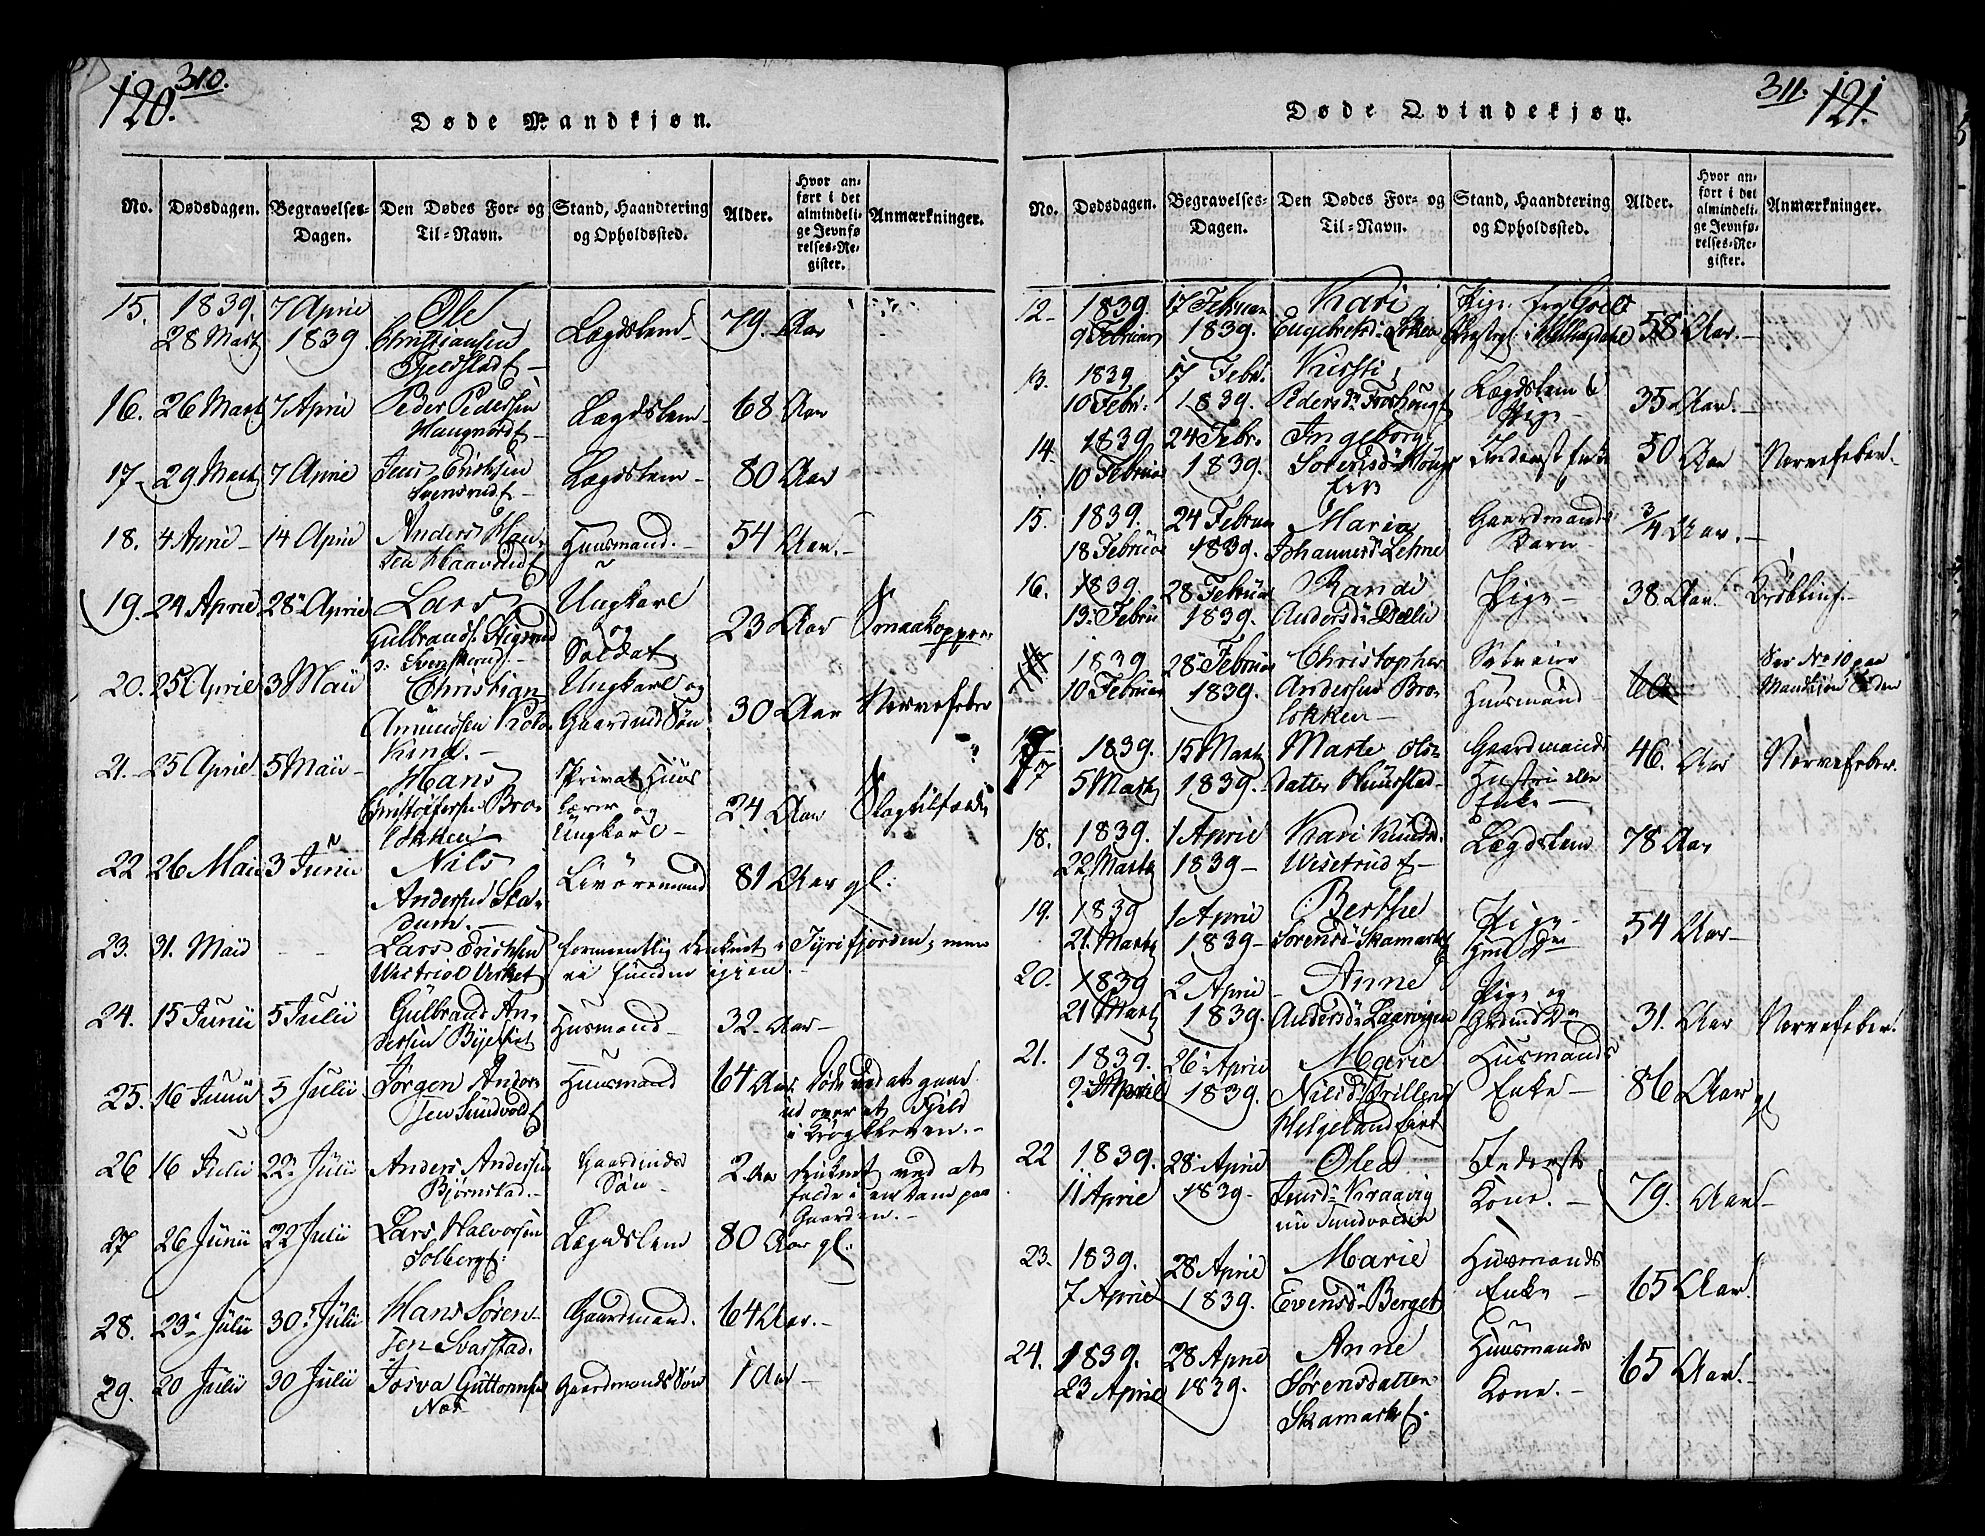 120. 310.
Døde Mandkjøn.
No. Dødsdagen. Begravelses-Dagen. Den Dødes For- og Til-Navn. Stand, Haandtering og Opholdssted. Alder. Hvor anført i det almindelige Jevnførelses-Register. Anmærkninger.
15. 1839. 7 April Ole
28 Marts 1839 Christiansen Lægdslem 79. Aar
Fjeldstad
16. 26 Marts 7 April Peder Pedersen Lægdslem 68 Aar
Haugnord
17 29 Marts 7 April Jens Erichsen Lægdslem 80 Aar
Svensrud
18. 4 April 14 April Anders Han- Huusmand. 54 Aar.
sen Haavelsrud
19. 24 April 28 April Lars Ungkarl
Gulbrands. Stigsrud og 23 Aar Smaakopper
Svenskerud Soldat
20. 25 April 3 Maii Christian Ungkarl og
Amundsen Gaardmds Søn 30 Aar Nervefeber
21. 25 April 5 Maii Hans Privat Huus
Christofersen Bro- lærer og 24 Aar Slagtilfælde
løkken Ungkarl
22 26 Maii 3 Junii Nils
Andersen Sta- Livøremand 81 Aar gl:
dum.
23. 31. Maii Lars Erichsen formentlig druknet i Tyrifjorden; men
ei funden igjen.
24. 15 Junii 5 Julii Gulbrand An- Husmand 32 Aar
dersen
25. 16 Junii 5 Julii Jørgen Ander- Huusmand 64 Aar. Døde ved at gaae
sen Sundvold ud over et Fjeld
i Krogkleven.
26 16 Julii 22 Julii Anders Andersen Gaardmds 2 Aar druknet ved at
Bjørnstad. Søn falde i en Dam paa
Gaarden.
27 26 Junii 22 Julii Lars Halvorsen Lægdslem 80 Aar gl:
Solberg
28. 23 Julii 30 Julii Hans Søren- Gaardmand. 64 Aar.
sen Svarstad.
29. 20 Julii 30 Julii Josva Guttormsen Gaardmands Søn 1 Aar
Næs
311. 121.
Døde Qvindekjøn.
No. Dødsdagen. Begravelses-Dagen. Den Dødes For- og Til-Navn. Stand, Haandtering og Opholdssted. Alder. Hvor anført i det almindelige Jevnførelses-Register. Anmærkninger.
12 1839. 17 Februar Kari Pige fra
9 Februar 1839. Engebretsd. Løken 58 Aar.
13. 1839 17 Febr. Kirsti Lægdslem &
10 Febr. 1839. Pedersdr. Froshoug Pige 35 Aar.
14. 1839 24 Febr. Ingeborg Inderst Enke 50 Aar Nervefeber.
10 Februar 1839. Sørensd. Houg
15. 1839. 24 Februar Maria Gaardmands 3/4 Aar.
18 Februar 1839. Johannesd. Lehne Barn
16. 1839. 28 Februar Randi Pige 38 Aar.
13 Febru 1839. Andersd. Dæli
1839 28 Februar Christopher
10 Februar 1839. Andersen Bro- Huusmand 60 See No 10 paa Mandkjøn Siden
løkken
17 1839. 15 Marts Marte Ols- Gaardmands 46. Aar Nervefeber.
5 Marts 1839. datter Hundstad Hustru eller
Enke
18. 1839. 1 April Kari Knuds. Lægdslem 78 Aar
22 Marts 1839 Vesetrud
19. 1839 1 April Berthe Pige 54 Aar
21 Marts 1839 Sørensd. Skamark
20. 1839 2 April Anne Pige og
21 Marts 1839. Andersd. Laarvigen 31. Aar Nervefeber.
21. 1839. 26 April Marie Husmands
2 April 1839. Nilsd. Enke 86 Aar gl
Helgelandseiet
22 1839. 28 April Olea Inderst
11 April 1839 Jensd. Kraavig Kone. 79. Aar
23. 1839. 28 April Marie Huusmands
7 April 1839. Evensd. Berget Enke 65 Aar.
24. 1839. 28 April Anne Huusmands
23 April 1839. Sørensdatter Kone. 65 Aar.
Skamark